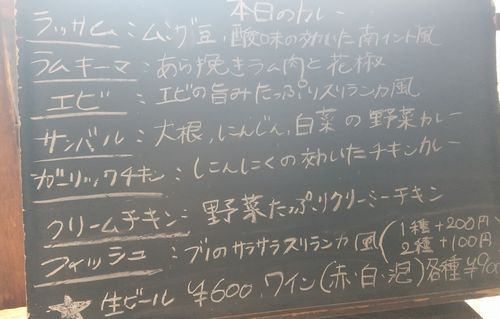 本日のカレー
ラッサム：ムング豆、酸味の効いた南インド風
ラムキーマ：あら挽きラム肉と花椒
エビ：エビの旨みたっぷりスリランカ風
サンバル：大根、にんじん、白菜の野菜カレー
ガーリックチキン：にんにくの効いたチキンカレー
クリームチキン：野菜たっぷりクリーミーチキン
フィッシュ：ブリのサラサラスリランカ風（1種+200円 2種+100円）
★生ビール ¥600、ワイン（赤・白・泡）各種¥900